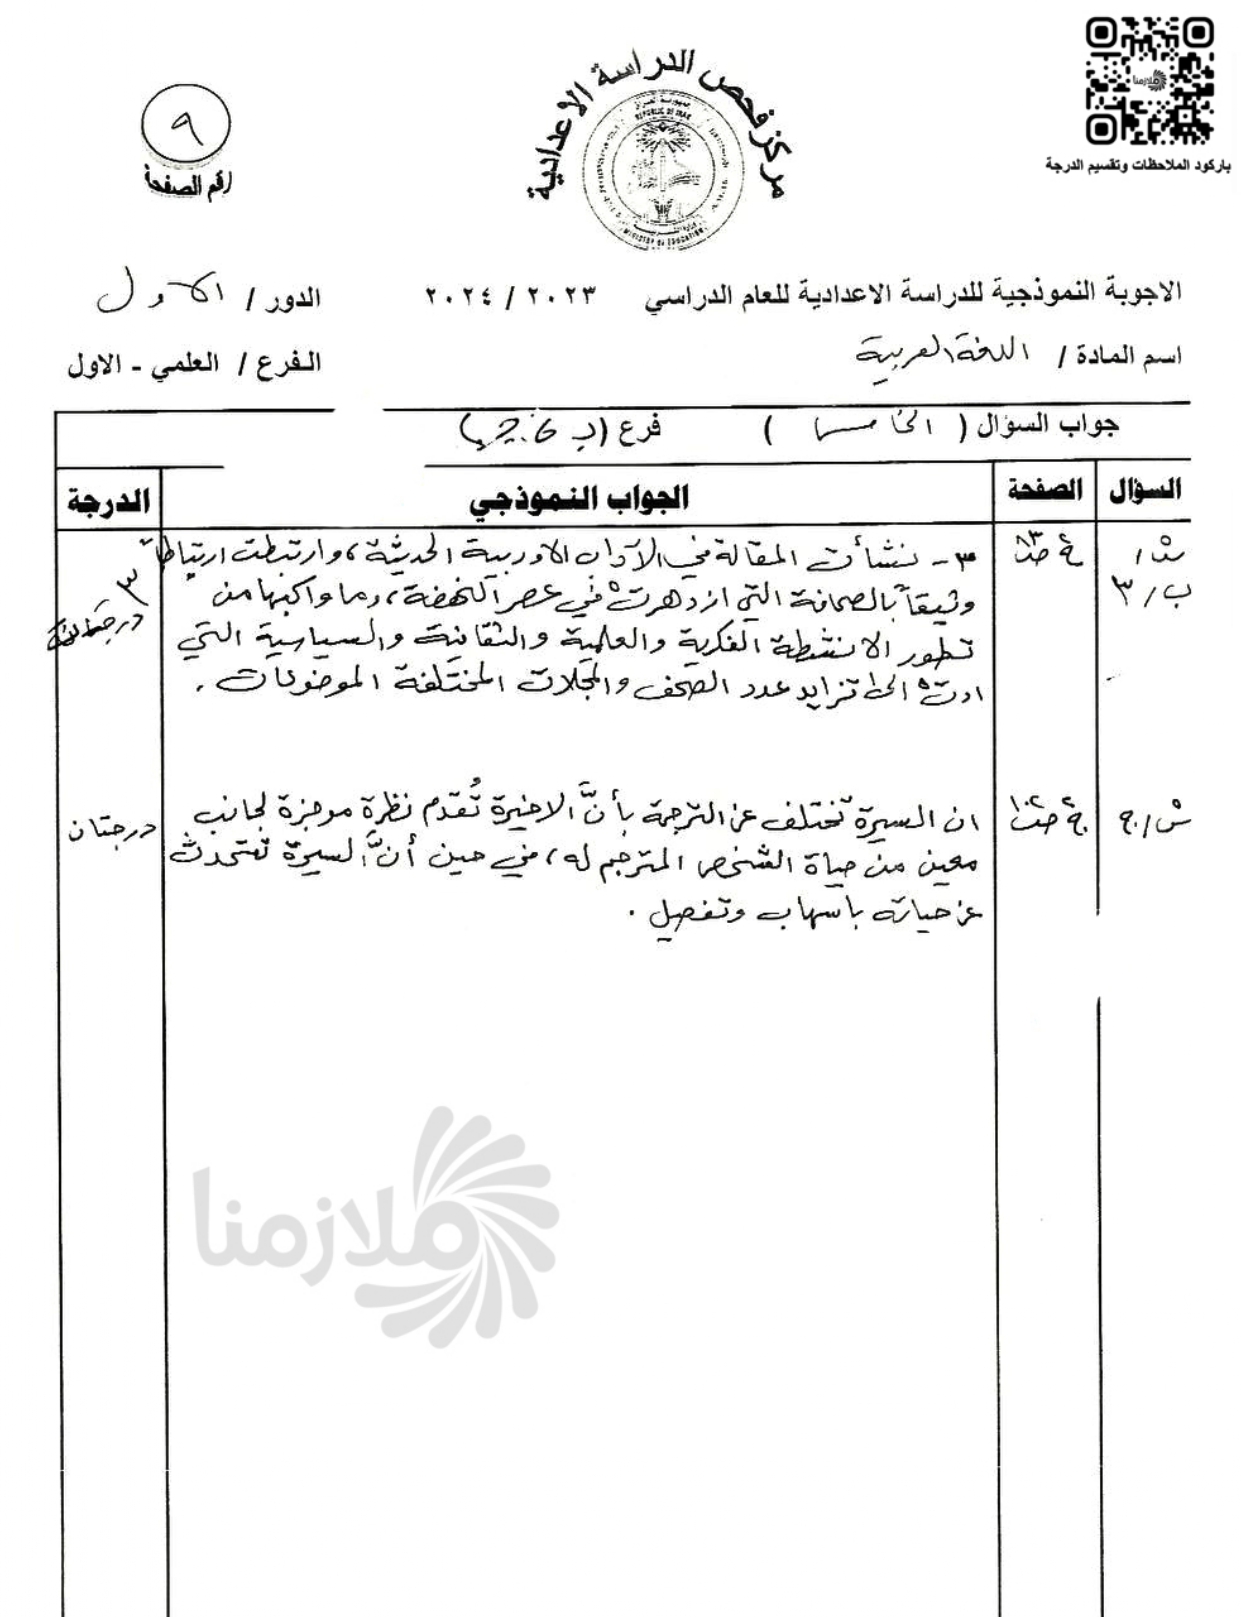 باركود الملاحظات وتقسيم الدرجة
مركز فحص الدراسة الاعدادية
جمهورية العراق
REPUBLIC OF IRAQ
MINISTRY OF EDUCATION
٩
رقم الصفحة
الاجوبة النموذجية للدراسة الاعدادية للعام الدراسي ٢٠٢٣ / ٢٠٢٤ الدور / الاول
اسم المادة / اللغة العربية الفرع / العلمي - الاول
جواب السؤال ( الخامس ) فرع (ب، ج)
السؤال الصفحة الجواب النموذجي الدرجة
ب/٣
٣- نشأت المقالة في الآداب الاوربية الحديثة، وارتبطت ارتباطاً
وثيقاً بالصحافة التي ازدهرت في عصر النهضة، وما واكبها من
تطور الانشطة الفكرية والعلمية والثقافية والسياسية التي
ادت الى تزايد عدد الصحف والمجلات المختلفة الموضوعات.
٣
س/ج
ان السيرة تختلف عن الترجمة بأنَّ الاخيرة تُقدم نظرة موجزة لجانب
معين من حياة الشخص المترجم له، في حين أنَّ السيرة تتحدث
عن حياته بأسهاب وتفصيل.
درجتان
ملازمنا